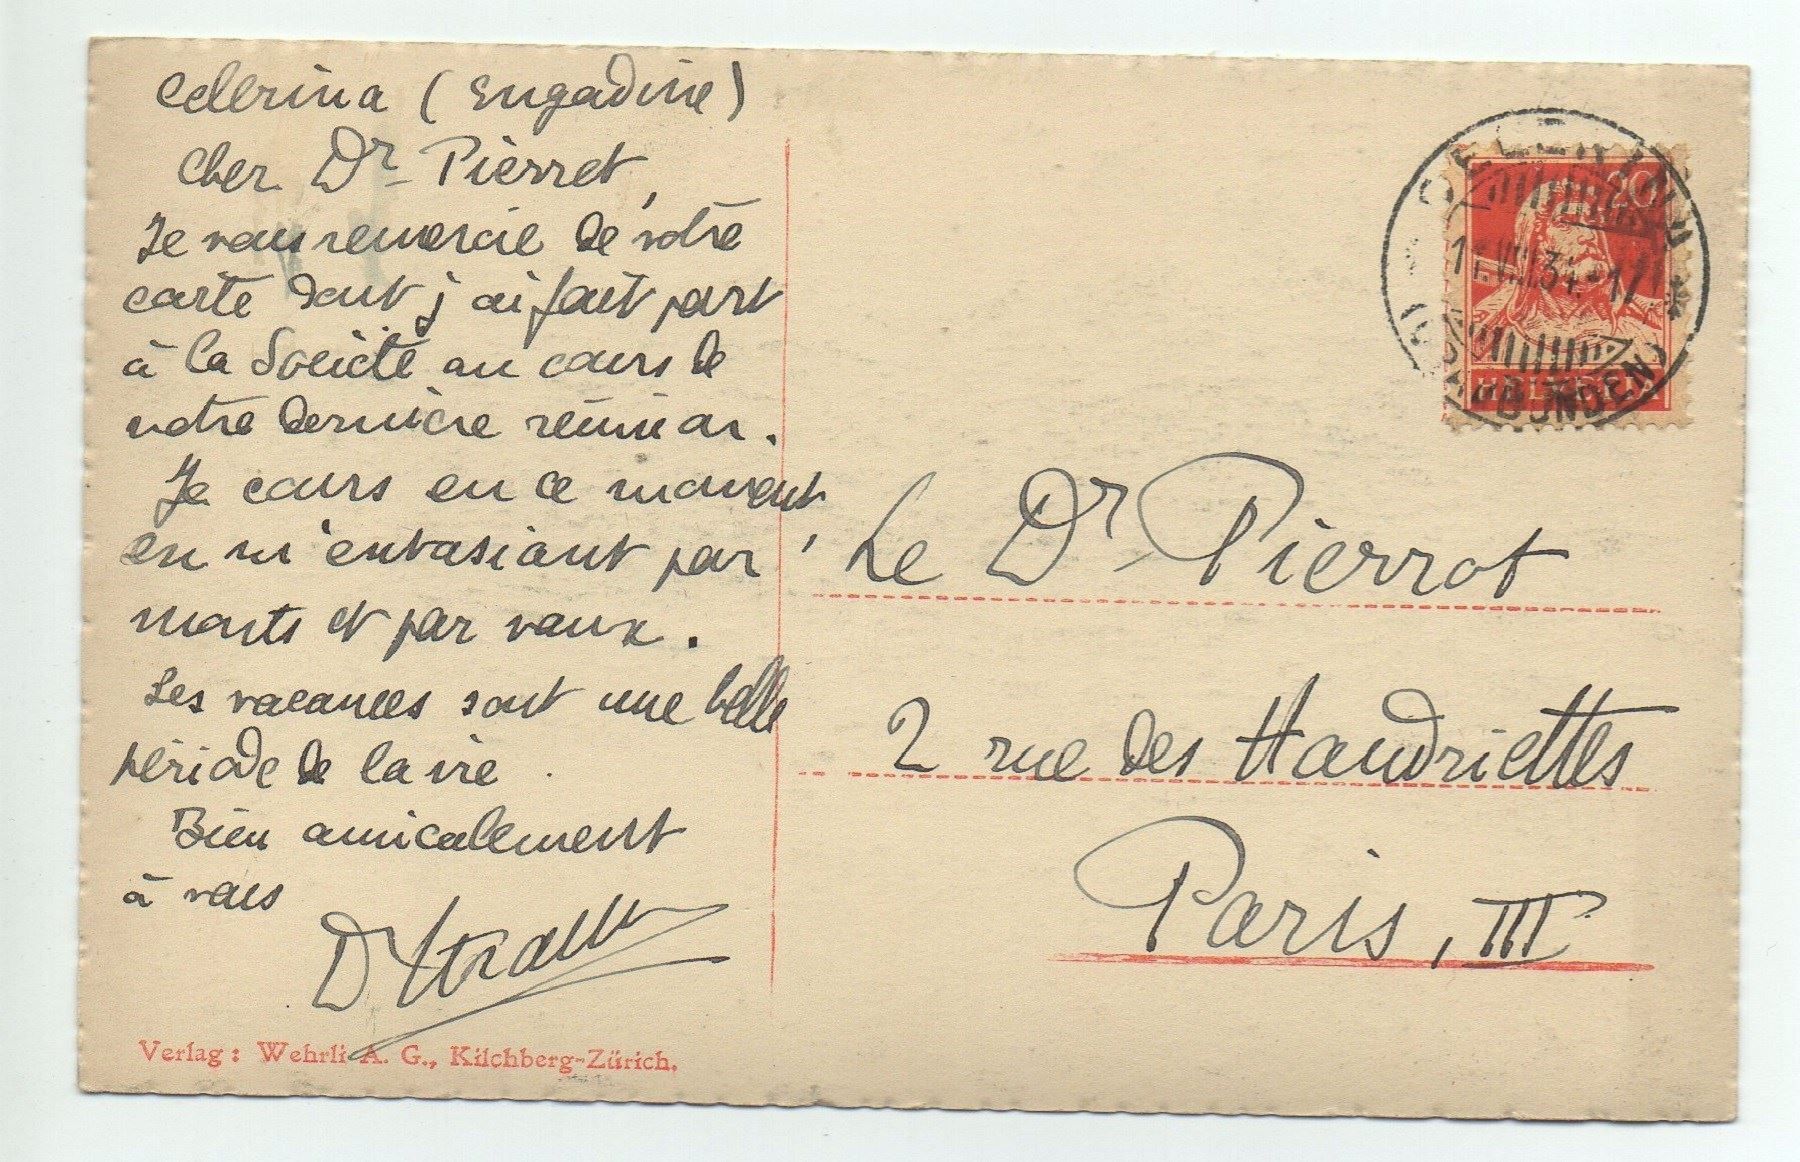 Celerina (Engadine)
Cher Dr Pierret,
Je vous remercie de votre
carte dont j'ai fait part
à la Société au cours de
notre dernière réunion.
Je cours en ce moment,
en m'extasiant par
monts et par vaux.
Les vacances sont une belle
période de la vie.
Bien amicalement
à vous
Dr
Verlag: Wehrli A. G., Kilchberg-Zürich.
20
CELERINA
11.VIII.34.-17
(GRAUBÜNDEN)
HELVETIA
Le Dr Pierrot
2 rue des Haudriettes
Paris, III